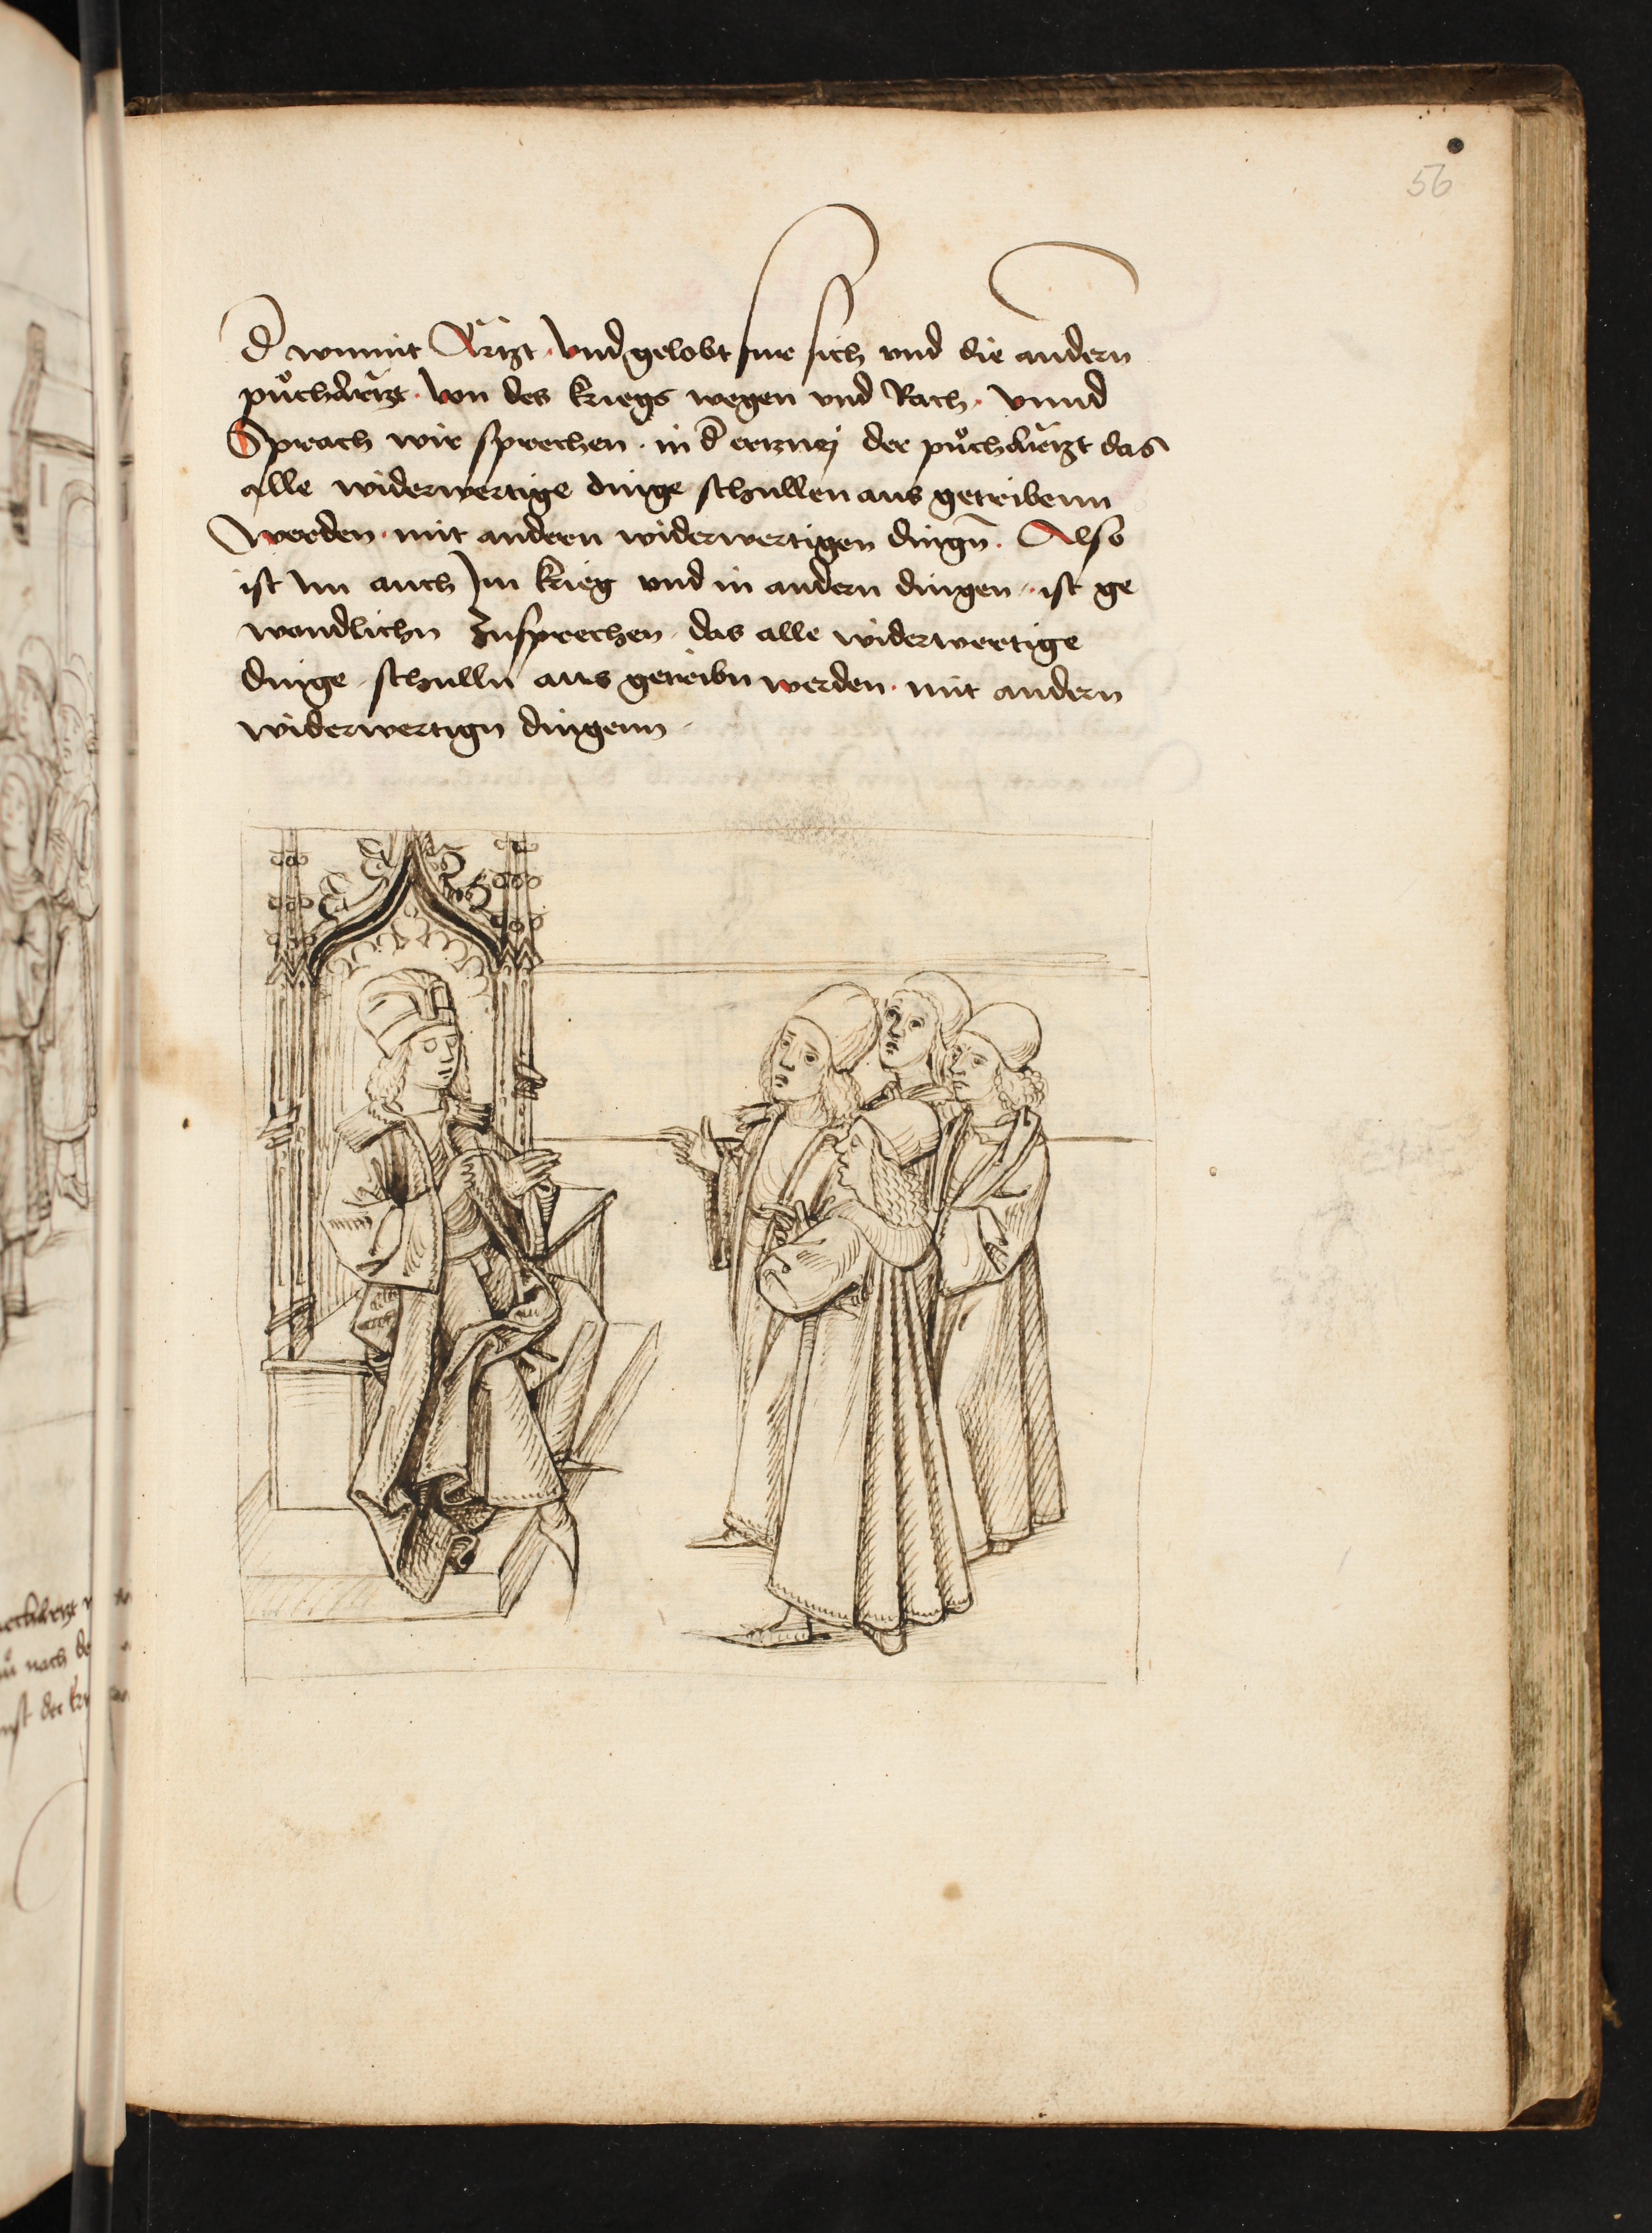 56
d̄ wunnt Artzt · vnd gelobt fur sich vnd die andern
půchärtzt · von des kriegs wegen vnd Rach · vnnd
Sprach wir sprechen · in d̄ ertznej der půchärtzt das
alle widerwertige dinge schullen aus getribenn
werden · mit andern widerwertigen dingn̄ · Also
ist im auch Im krieg vnd in andern dingen · ist ge
wondlichn zusprechen · das alle widerwertige
dinge · schulln aus getribn werden · mit andern
widerwertign dingenn
nach
der